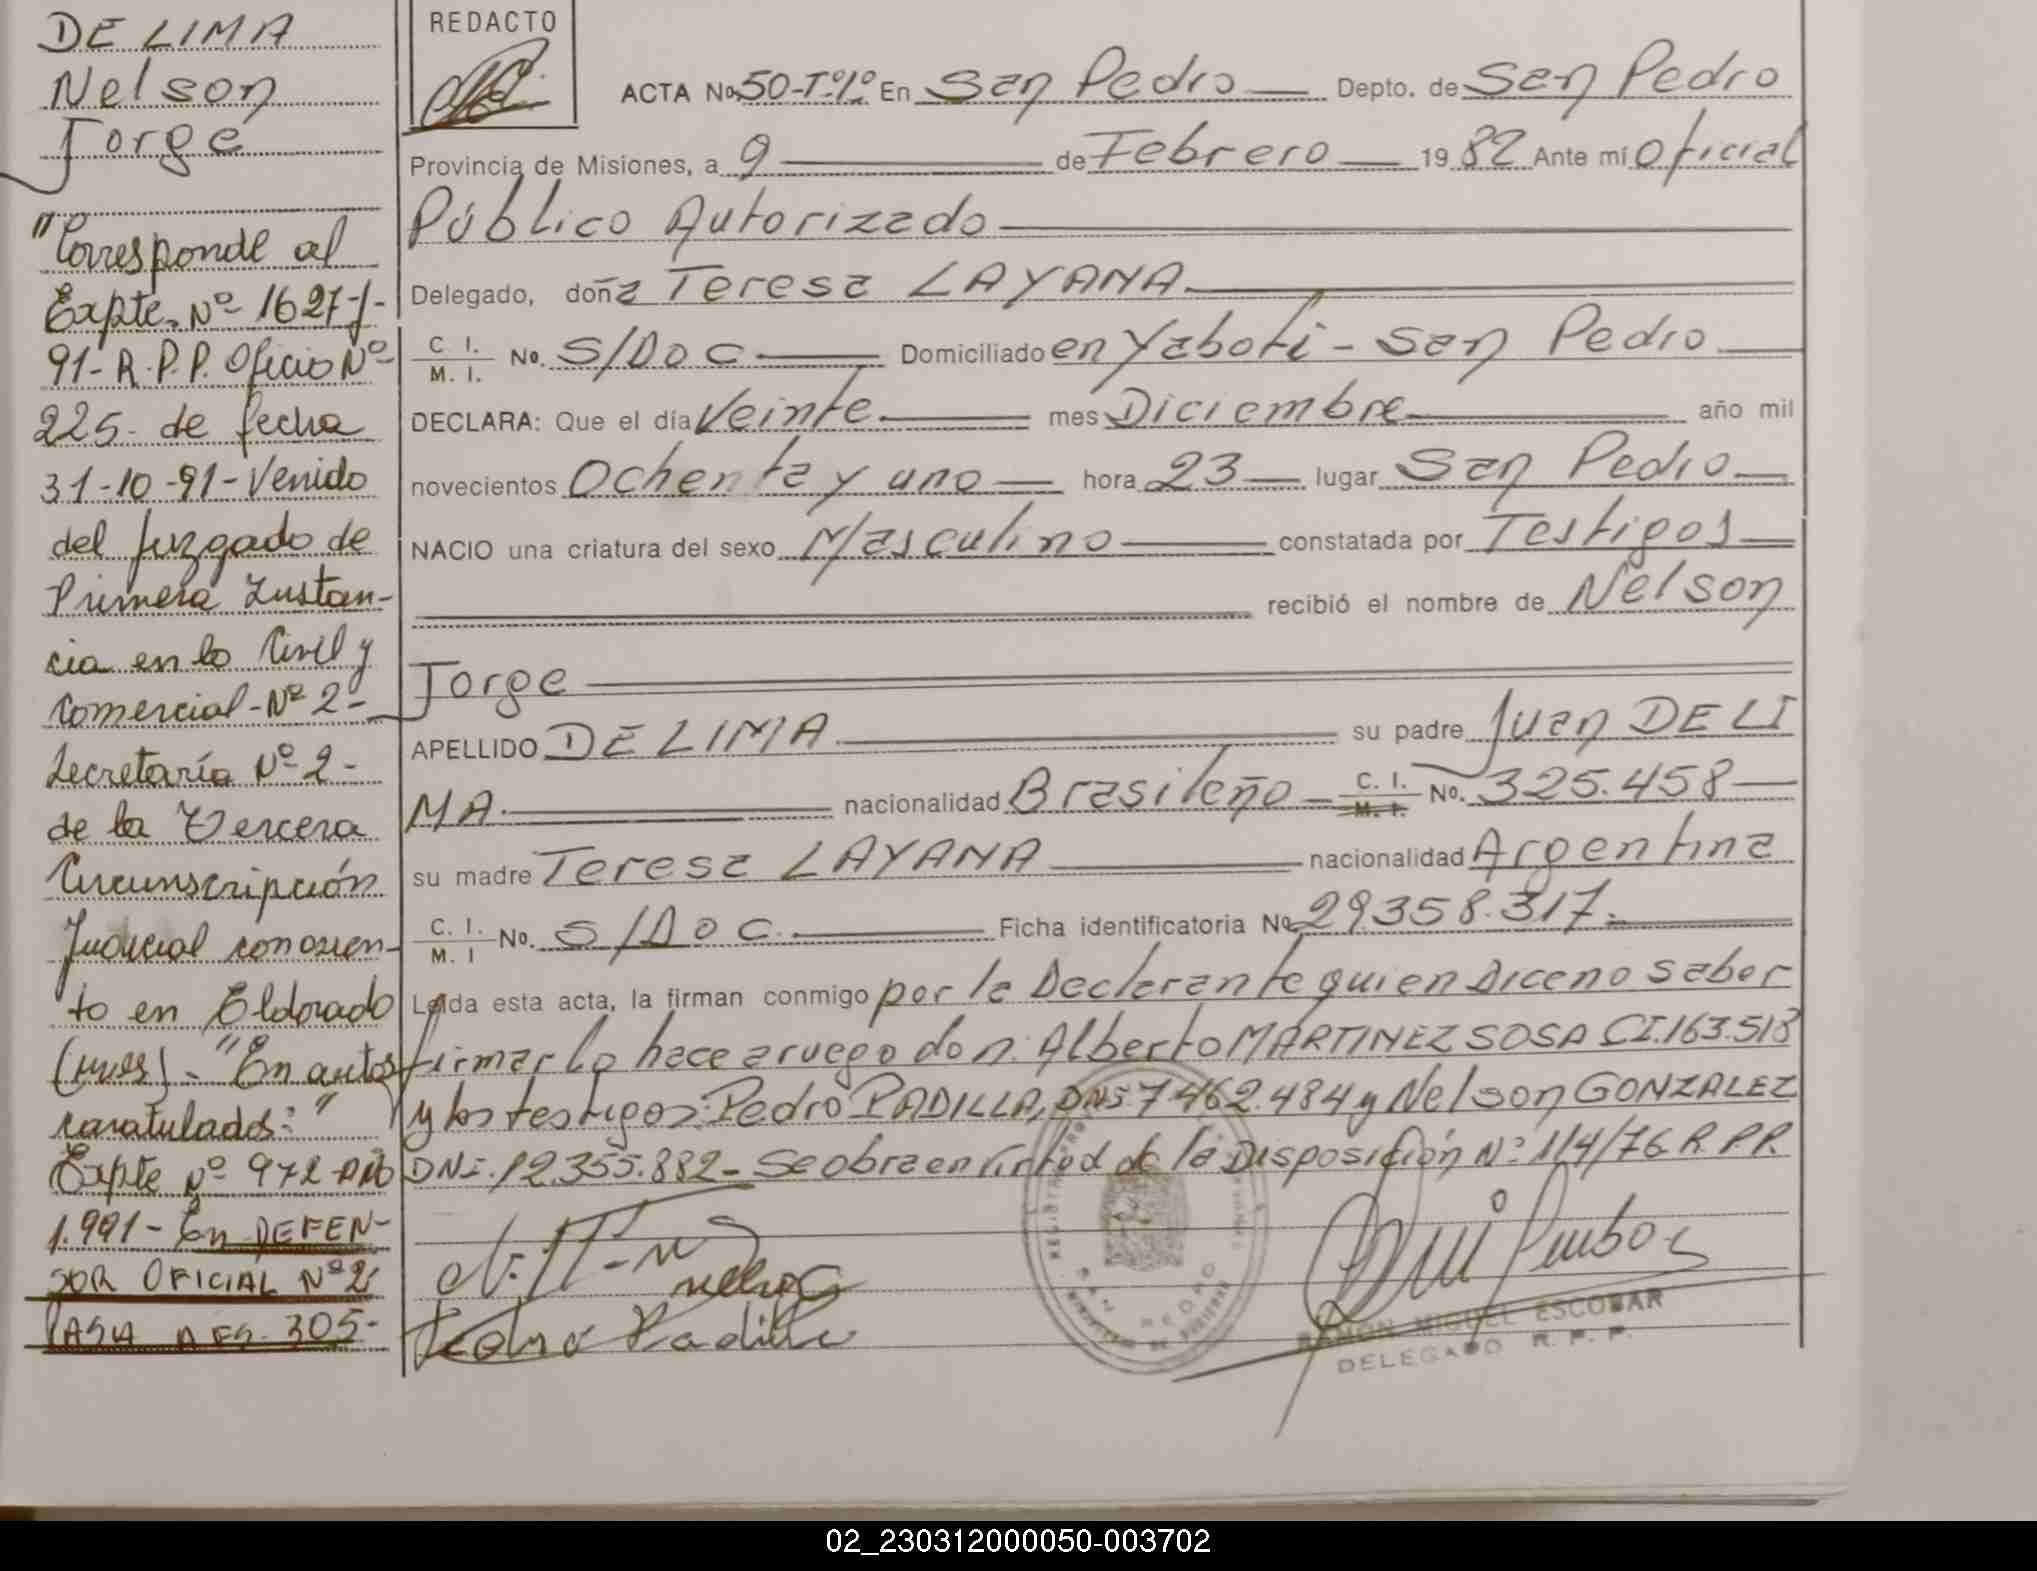 DE LIMA
Nelson
Jorge
"Corresponde al
Expte. Nº 1627-/-
91- R.P.P. Oficio Nº
225- de fecha
31-10-91- Venido
del Juzgado de
Primera Instan-
cia en lo Civil y
Comercial-Nº 2-
Secretaría Nº 2-
de la Tercera
Circunscripción
Judicial con asien-
to en Eldorado
(Mnes). "En autos
caratulados:"
Expte Nº 972 AÑO
1.991- En DEFEN-
SOR OFICIAL Nº 2
PASA A FS. 305-
REDACTO
ACTA No. 50-Tº1º En San Pedro Depto. de San Pedro
Provincia de Misiones, a 9 de Febrero 1982 Ante mí Oficial
Público Autorizado
Delegado, doña Teresa LAYANA
C. I.
M. I. No. S/DOC Domiciliado en Yabotí - San Pedro
DECLARA: Que el día Veinte mes Diciembre año mil
novecientos Ochenta y uno hora 23 lugar San Pedro
NACIO una criatura del sexo Masculino constatada por Testigos
recibió el nombre de Nelson
Jorge
APELLIDO DE LIMA su padre Juan DE LI
MA. nacionalidad Brasileño C. I. M. I. No. 325.458
su madre Teresa LAYANA nacionalidad Argentina
C. I.
M. I No. S/DOC. Ficha identificatoria No 29.358.317.
Leida esta acta, la firman conmigo por la Declarante quien Dice no saber
firmar lo hace a ruego don: Alberto MARTINEZ SOSA CI.163.518
y los testigos: Pedro PADILLA, DNI 7462.484 y Nelson GONZALEZ
DNI. 12.355.882- Se obra en Virtud de la Disposición Nº 114/76 R.P.P.
Pedro Padilla
SAN PEDRO
RAMON MIGUEL ESCOBAR
DELEGADO R. P. P.
02_230312000050-003702